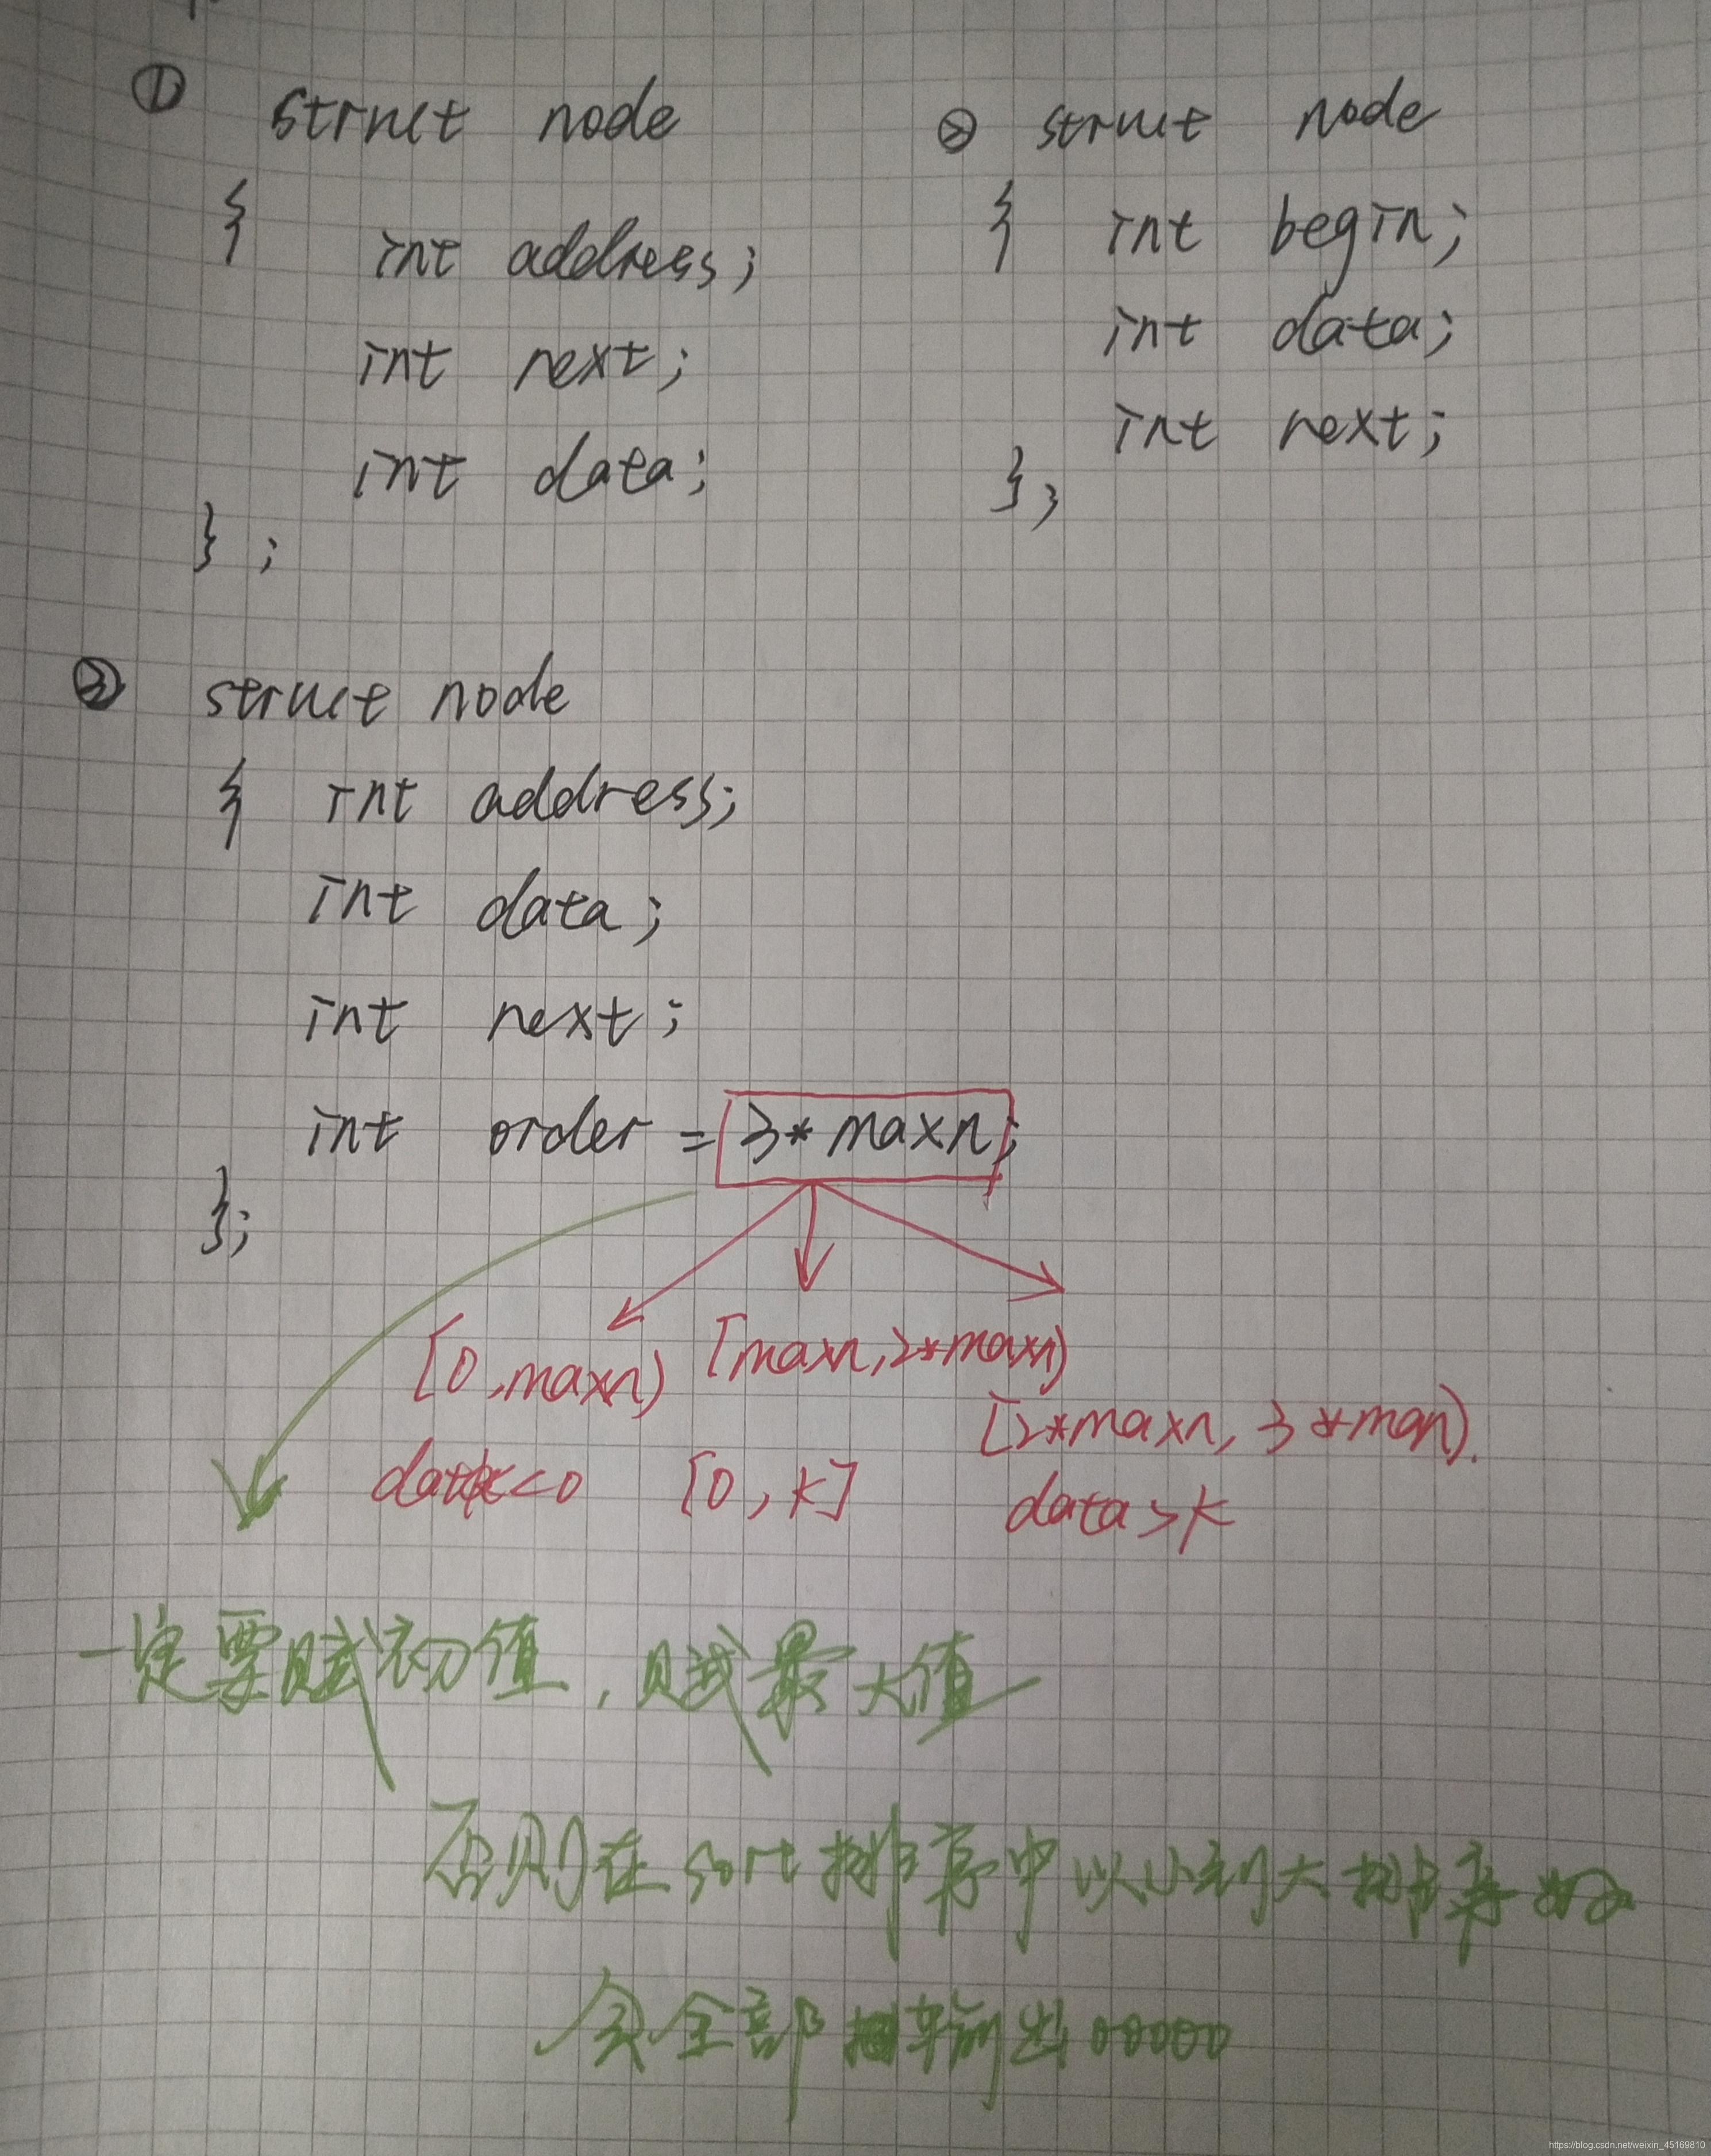 ① struct node
{ int address;
int next;
int data;
};
② struct node
{ int begin;
int data;
int next;
};
③ struct node
{ int address;
int data;
int next;
int order = 3*maxn;
};
[0,maxn) [maxn,2*maxn)
[2*maxn, 3*man).
data<0 [0,k]
data>k
一定要赋初值,赋最大值
否则在sort排序中以小到大排序
会全部 输出00000
https://blog.csdn.net/weixin_45169810